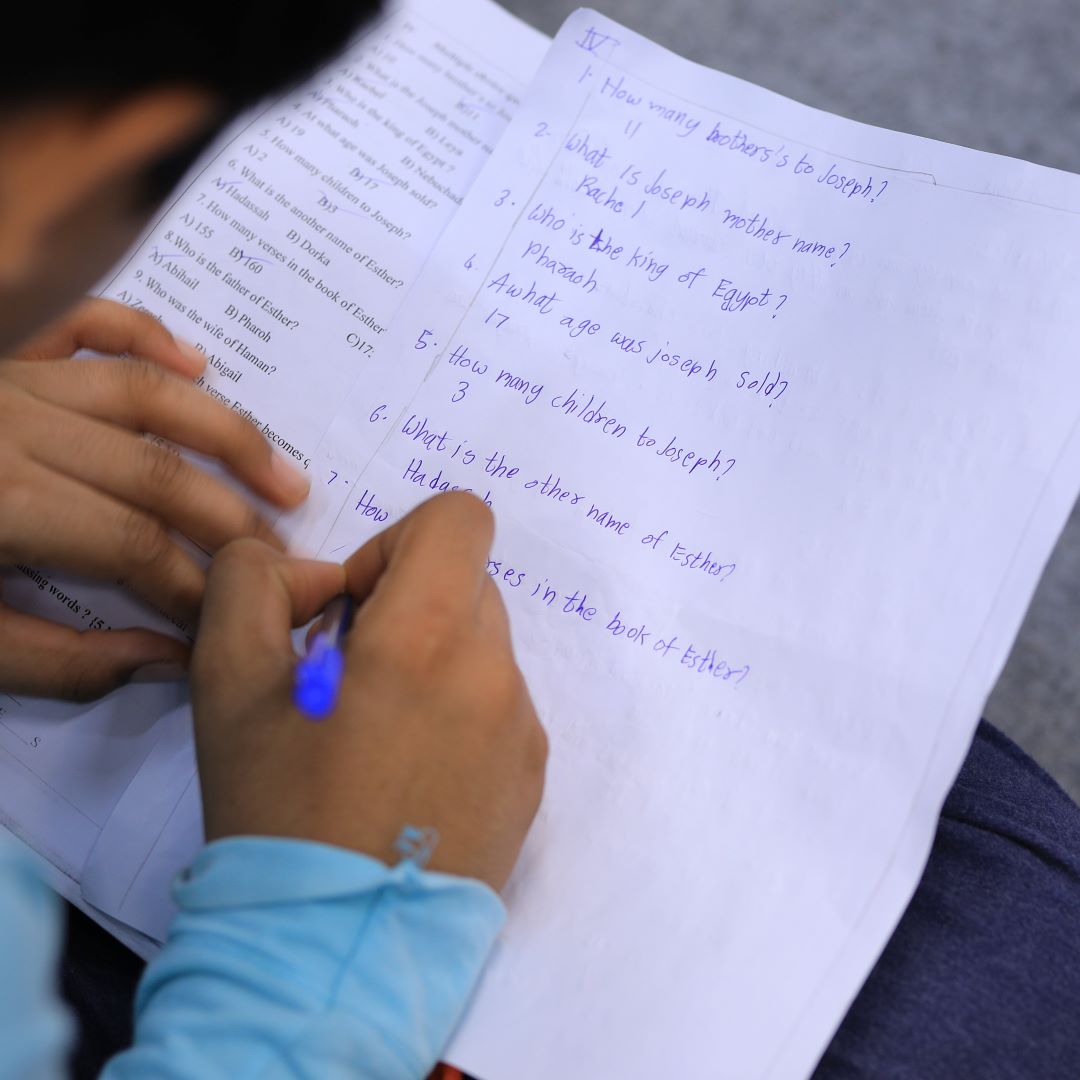 Multiple choice
A) Rachel
B) Leya
3. Who is the king of Egypt?
A) Pharaoh
B) Nebuchad
4. At what age was Joseph sold?
A) 19
B) 17
5. How many children to Joseph?
A) 2
B) 3
6. What is the another name of Esther?
A) Hadassah
B) Dorka
7. How many verses in the book of Esther
A) 155
B) 160
C) 17
8. Who is the father of Esther?
A) Abihail
B) Pharoh
9. Who was the wife of Haman?
Abigail
verse Esther becomes
issing words ? {5
S
IV
1. How many brothers's to Joseph?
11
2. What Is Joseph mother name?
Rachel
3. Who is the king of Egypt?
Pharaoh
4. Awhat age was joseph sold?
17
5. How many children to Joseph?
3
6. What is the other name of Esther?
7. How rses in the book of Esther?